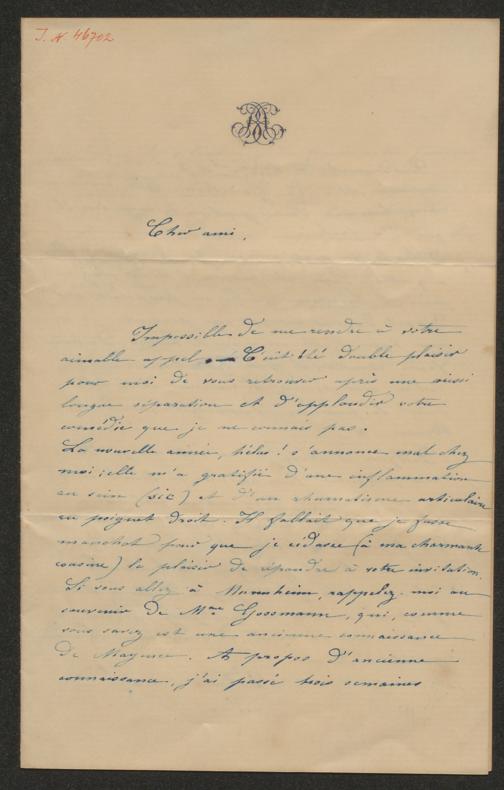 I. N 46702
Cher ami,
Impossible de me rendre à votre
aimable appel. — C'eut été double plaisir
pour moi de vous retrouver après une aussi
longue séparation et d'applaudir votre
comédie que je ne connais pas.
La nouvelle année, hélas! s'annonce mal chez
moi; elle m'a gratifié d'une inflammation
au (sic) et d'un rhumatisme articulaire
au poignet droit. Il fallait que je fusse
manchot pour que je cédasse (à ma charmante
cousine) le plaisir de répondre à votre invitation.
Si vous allez à Mannheim, rappelez-moi au
souvenir de Mme Gossmann, qui, comme
vous savez est une ancienne connaissance
de Mayence. A propos d'ancienne
connaissance, j'ai passé trois semaines